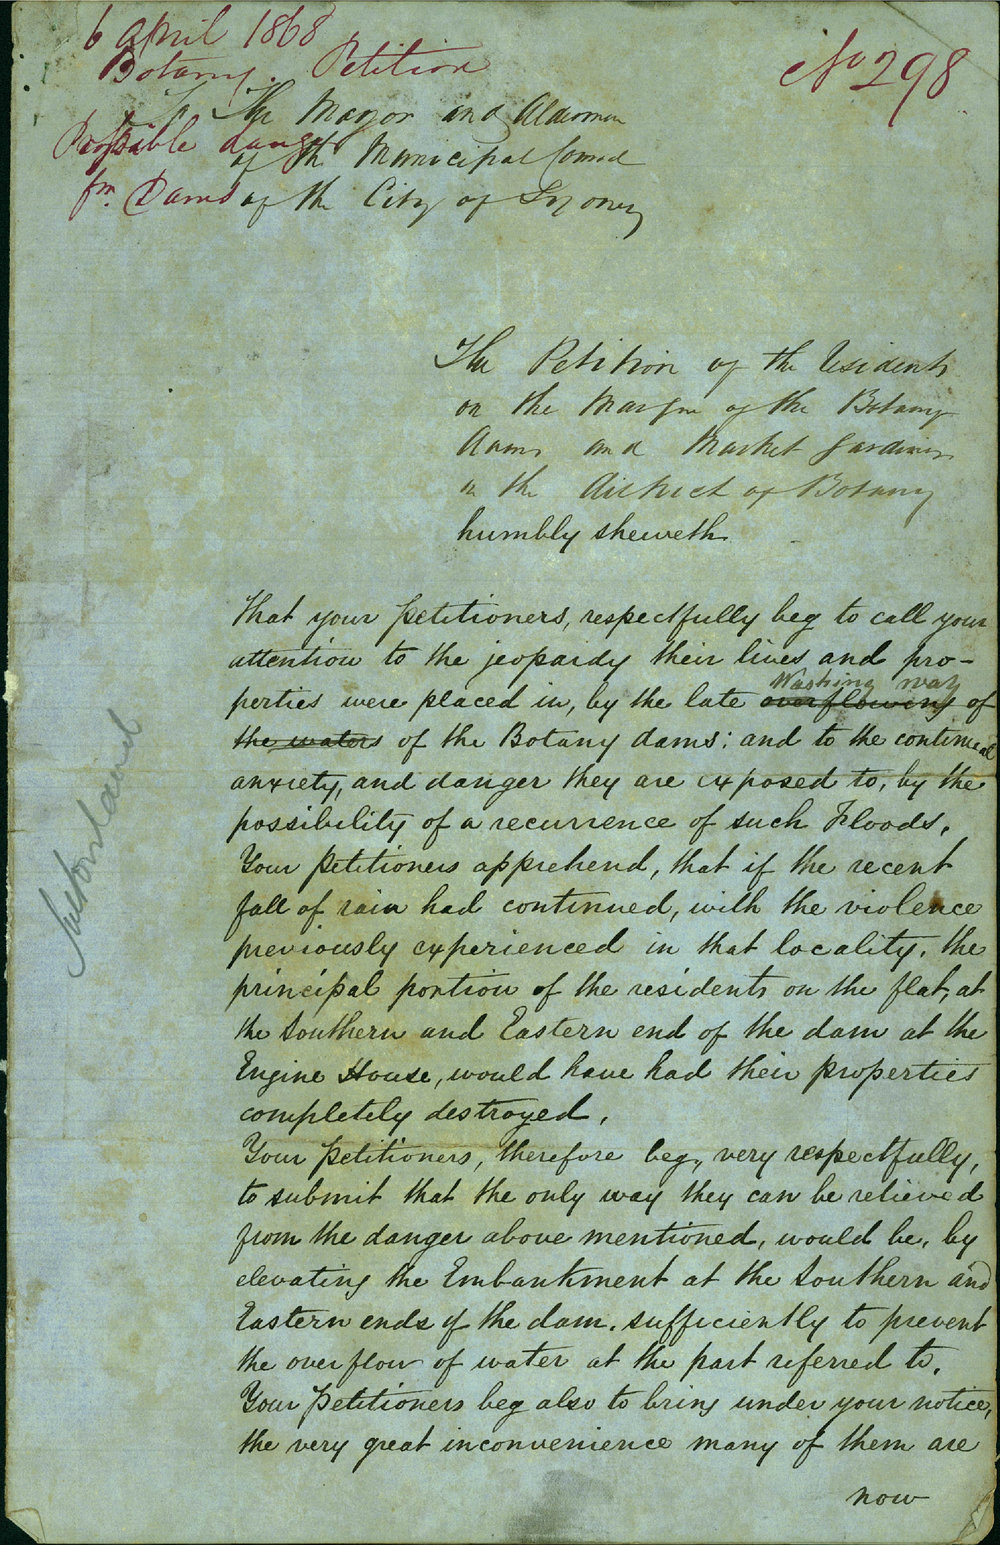 6 April 1868
Botany. Petition
No 298
To The Mayor and Aldermen
Possible danger
of the Municipal Council
fm. Dams
of the City of Sydney
The Petition of the Residents
on the Margin of the Botany
Dams and Market Gardiners
in the District of Botany
humbly sheweth
That your petitioners, respectfully beg to call your
attention to the jeopardy their lives and pro-
Washing way
perties were placed in, by the late overflowing of
the waters of the Botany dams; and to the continual
anxiety, and danger they are exposed to, by the
possibility of a recurrence of such Floods.
Your petitioners apprehend, that if the recent
fall of rain had continued, with the violence
previously experienced in that locality, the
principal portion of the residents on the flat, at
the Southern and Eastern end of the dam at the
Engine House, would have had their properties
completely destroyed.
Your petitioners, therefore beg, very respectfully,
to submit that the only way they can be relieved
from the danger above mentioned, would be, by
elevating the Embankment at the Southern and
Eastern ends of the dam, sufficiently to prevent
the overflow of water at the part referred to.
Your petitioners beg also to bring under your notice,
the very great inconvenience many of them are
now